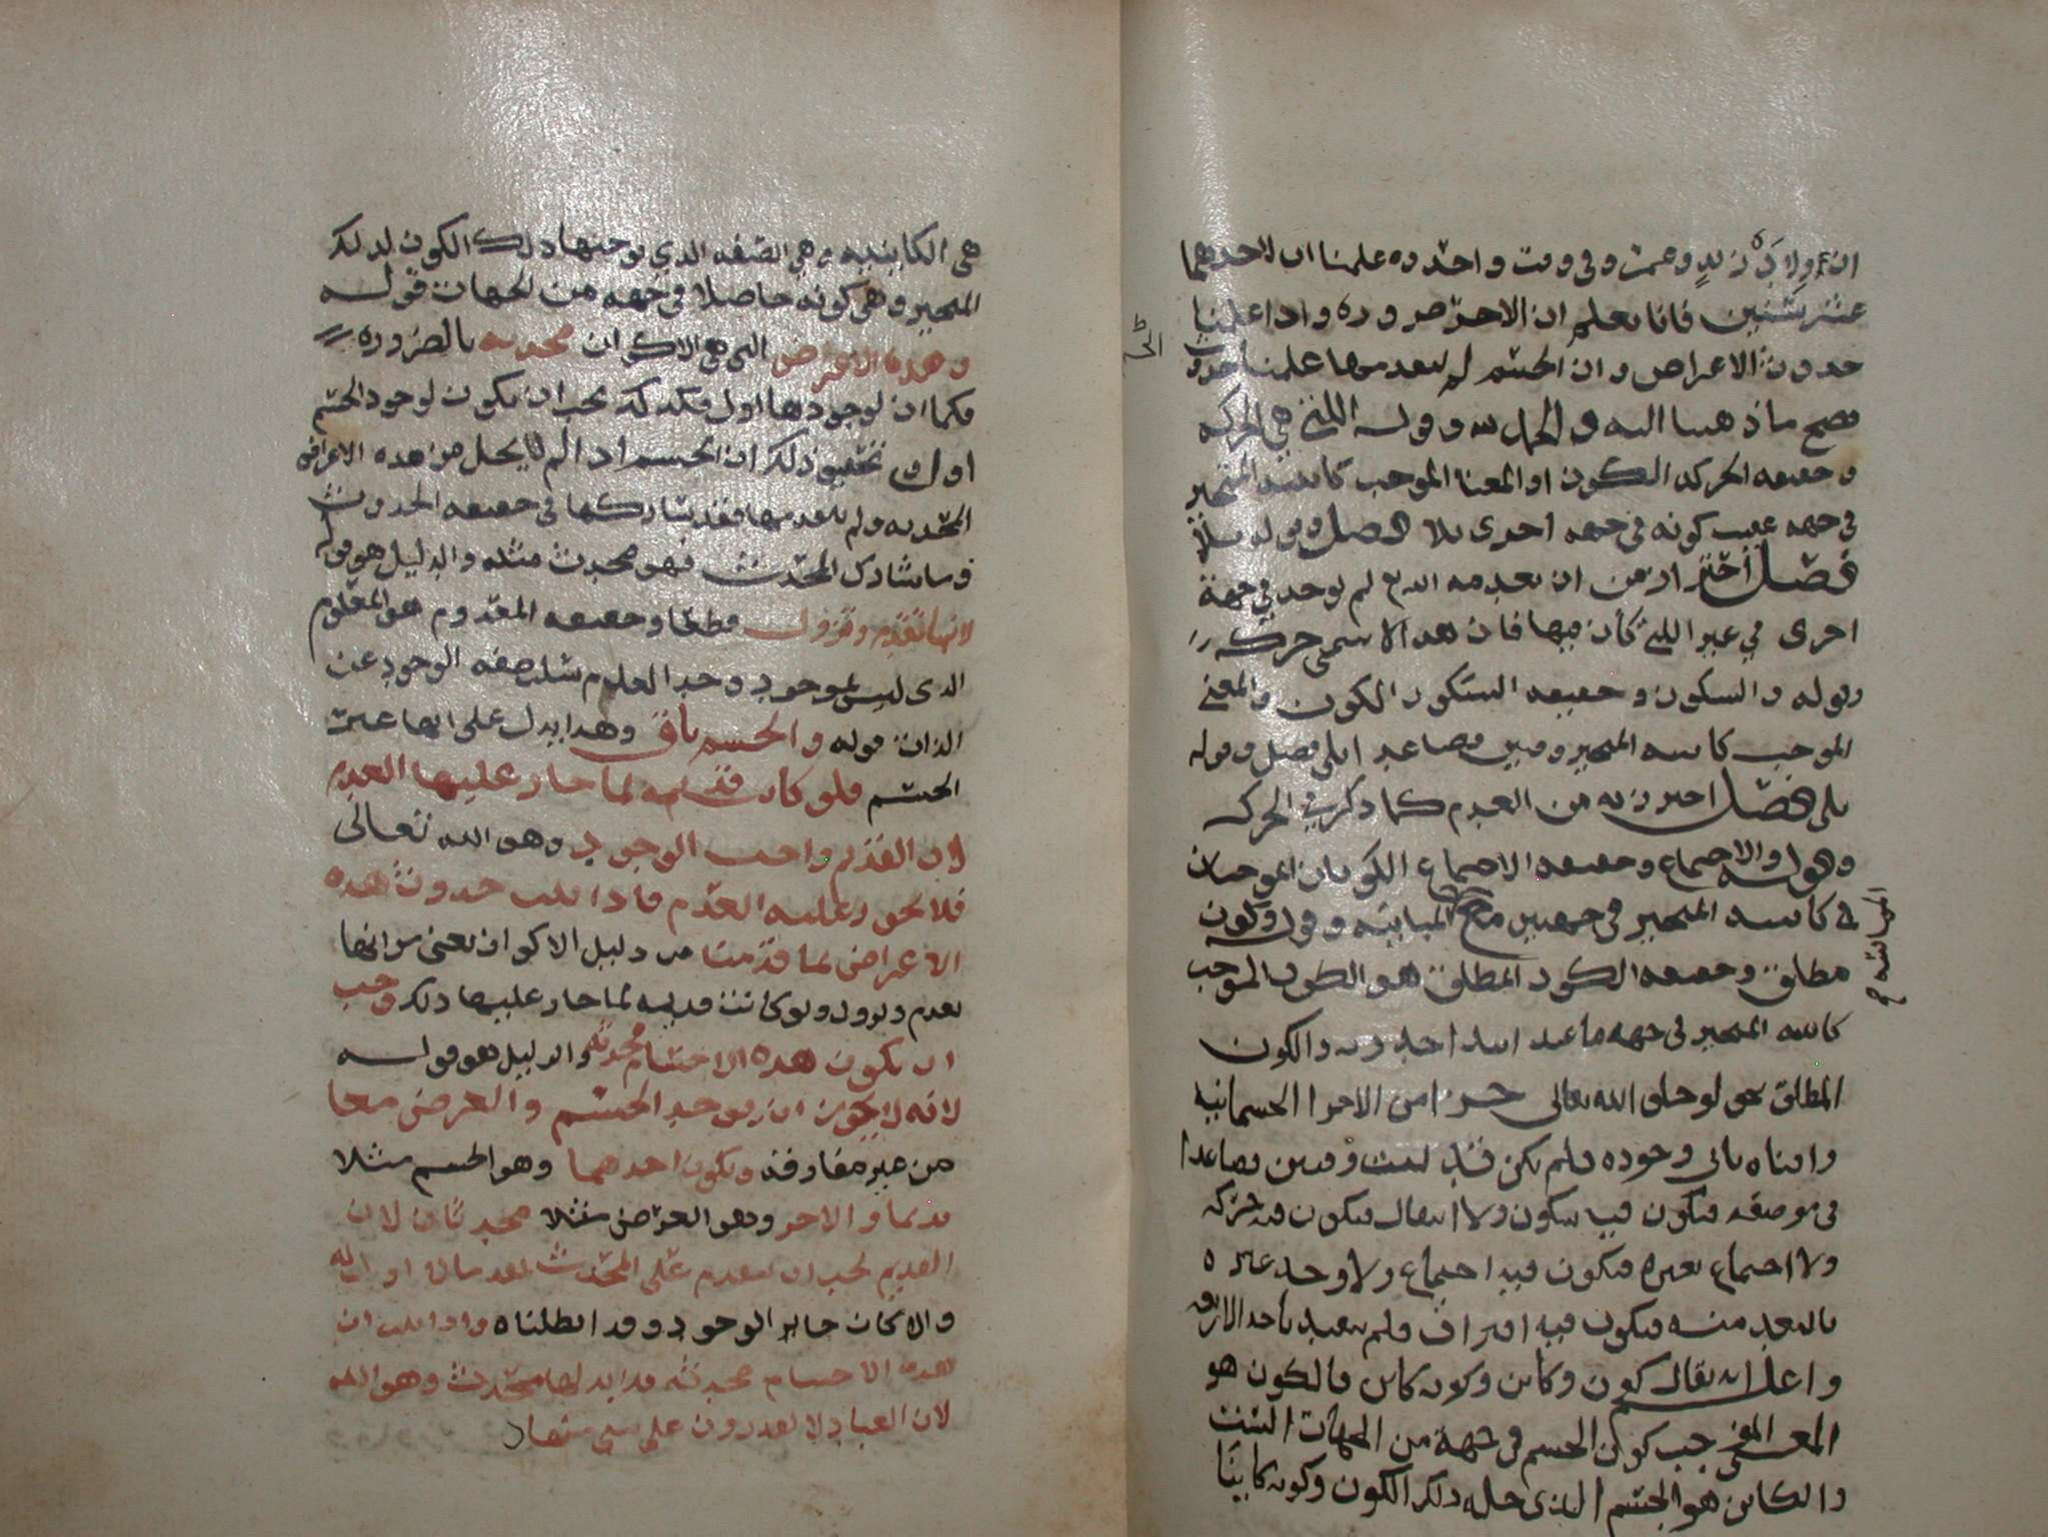 ان ولادة زيد وعمر وفي وقت واحد وه علمنا ان لاحدهما
عشر سنين فانا نعلم ان الاخر ضروره واذا علمنا
حدوث الاعراض وان الجسم لم يتقدمها علمنا حدوث
الجسم
فصح ما ذهبنا اليه وقوله التي هي الحركه
وحقيقه الحركه الكون او المعنا الموجب كاينيه المتحيز
في جهه عقيب كونه في جهه اخرى بلا فصل وقوله بلا
فصل احتراز من ان يعدمه الله ثم لم يوجد في جهة
اخرى في غير التي كان فيها فان هذا لا يسمى حركه
وقوله والسكون وحقيقه السكون الكون والمعنى
الموجب كاينيه المتحيز وقتين فصاعدا بلى فصل وقوله
بلى فصل احترازه من العدم كما ذكر في الحركه
وقوله والاجتماع وحقيقه الاجتماع الكونان الموجبان
في كاينيه المتحيز في جهتين المباينه وقوله وكون
مطلق وحقيقه الكون المطلق هو الكون الموجب
كاينيه المتحيز في جهه ما عند ابتدا حدوثه والكون
المطلق نحو لو خلق الله تعالى جزا من الاجزا الجسمانيه
وافناه ثاني وجوده فلم يكن قد لبث وقتين فصاعدا
في موضعه فيكون فيه سكون ولا انتقال فيكون فيه حركه
ولا اجتماع بغيره فيكون فيه اجتماع ولا وجد غيره
بالبعد منه فيكون فيه افتراق فلم يقيد باحد الاربعه
واعلم انه يقال كون وكاين وكونه كاين فالكون هو
المعنى الموجب كون الجسم في جهة من الجهات الست
والكاين هو الجسم الذي حله ذلك الكون وكونه كاينا
هي الكاينيه وهي الصفه الذي يوجبها ذلك الكون لذلك
المتحيز وهي كونه حاصلا في جهه من الجهات قوله
وهذه الاعراض التي هي الاكوان محدثه بالضروره
فكما ان لوجودها اول فكذلك يجب ان يكون لوجود الجسم
اول تحقيق ذلك ان الجسم اذا لم يحل من هذه الاعراض
المحدثه ولم يتقدمها فقد شاركها في حقيقه الحدوث
وما شارك المحدث فهو محدث مثله والدليل هو قوله
لانها تعدم وتزول قطعا وحقيقه المعدوم هو المعلوم
الذي ليس بموجود وحد العدم سلب صفه الوجود عن
الذات قوله والجسم باق وهذا يدل على انها غير
الجسم فلو كانت قديمه لما جاز عليها العدم
لان القديم واجب الوجود وهو الله تعالى
فلا يجوز عليه العدم فاذا ثبت حدوث هذه
الاعراض لما قدمنا من دليل الاكوان يعني من انها
تعدم وتزول ولو كانت قديمه لما جاز عليها ذلك وجب
ان يكون هذه الاجسام محدثه والدليل هو قوله
لانه لا يجوز ان يوجد الجسم والعرض معا
من غير مفارقه ويكون احدهما وهو الجسم مثلا
قديما والاخر وهو العرض مثلا محدثا لان
القديم يجب ان يتقدم على المحدث
والا كان جايز الوجود وقد ابطلناه واذا ثبت ان
هذه الاجسام محدثه فلا بد لها من محدث وهو الله
لان العباد لا يقدرون على شي منها